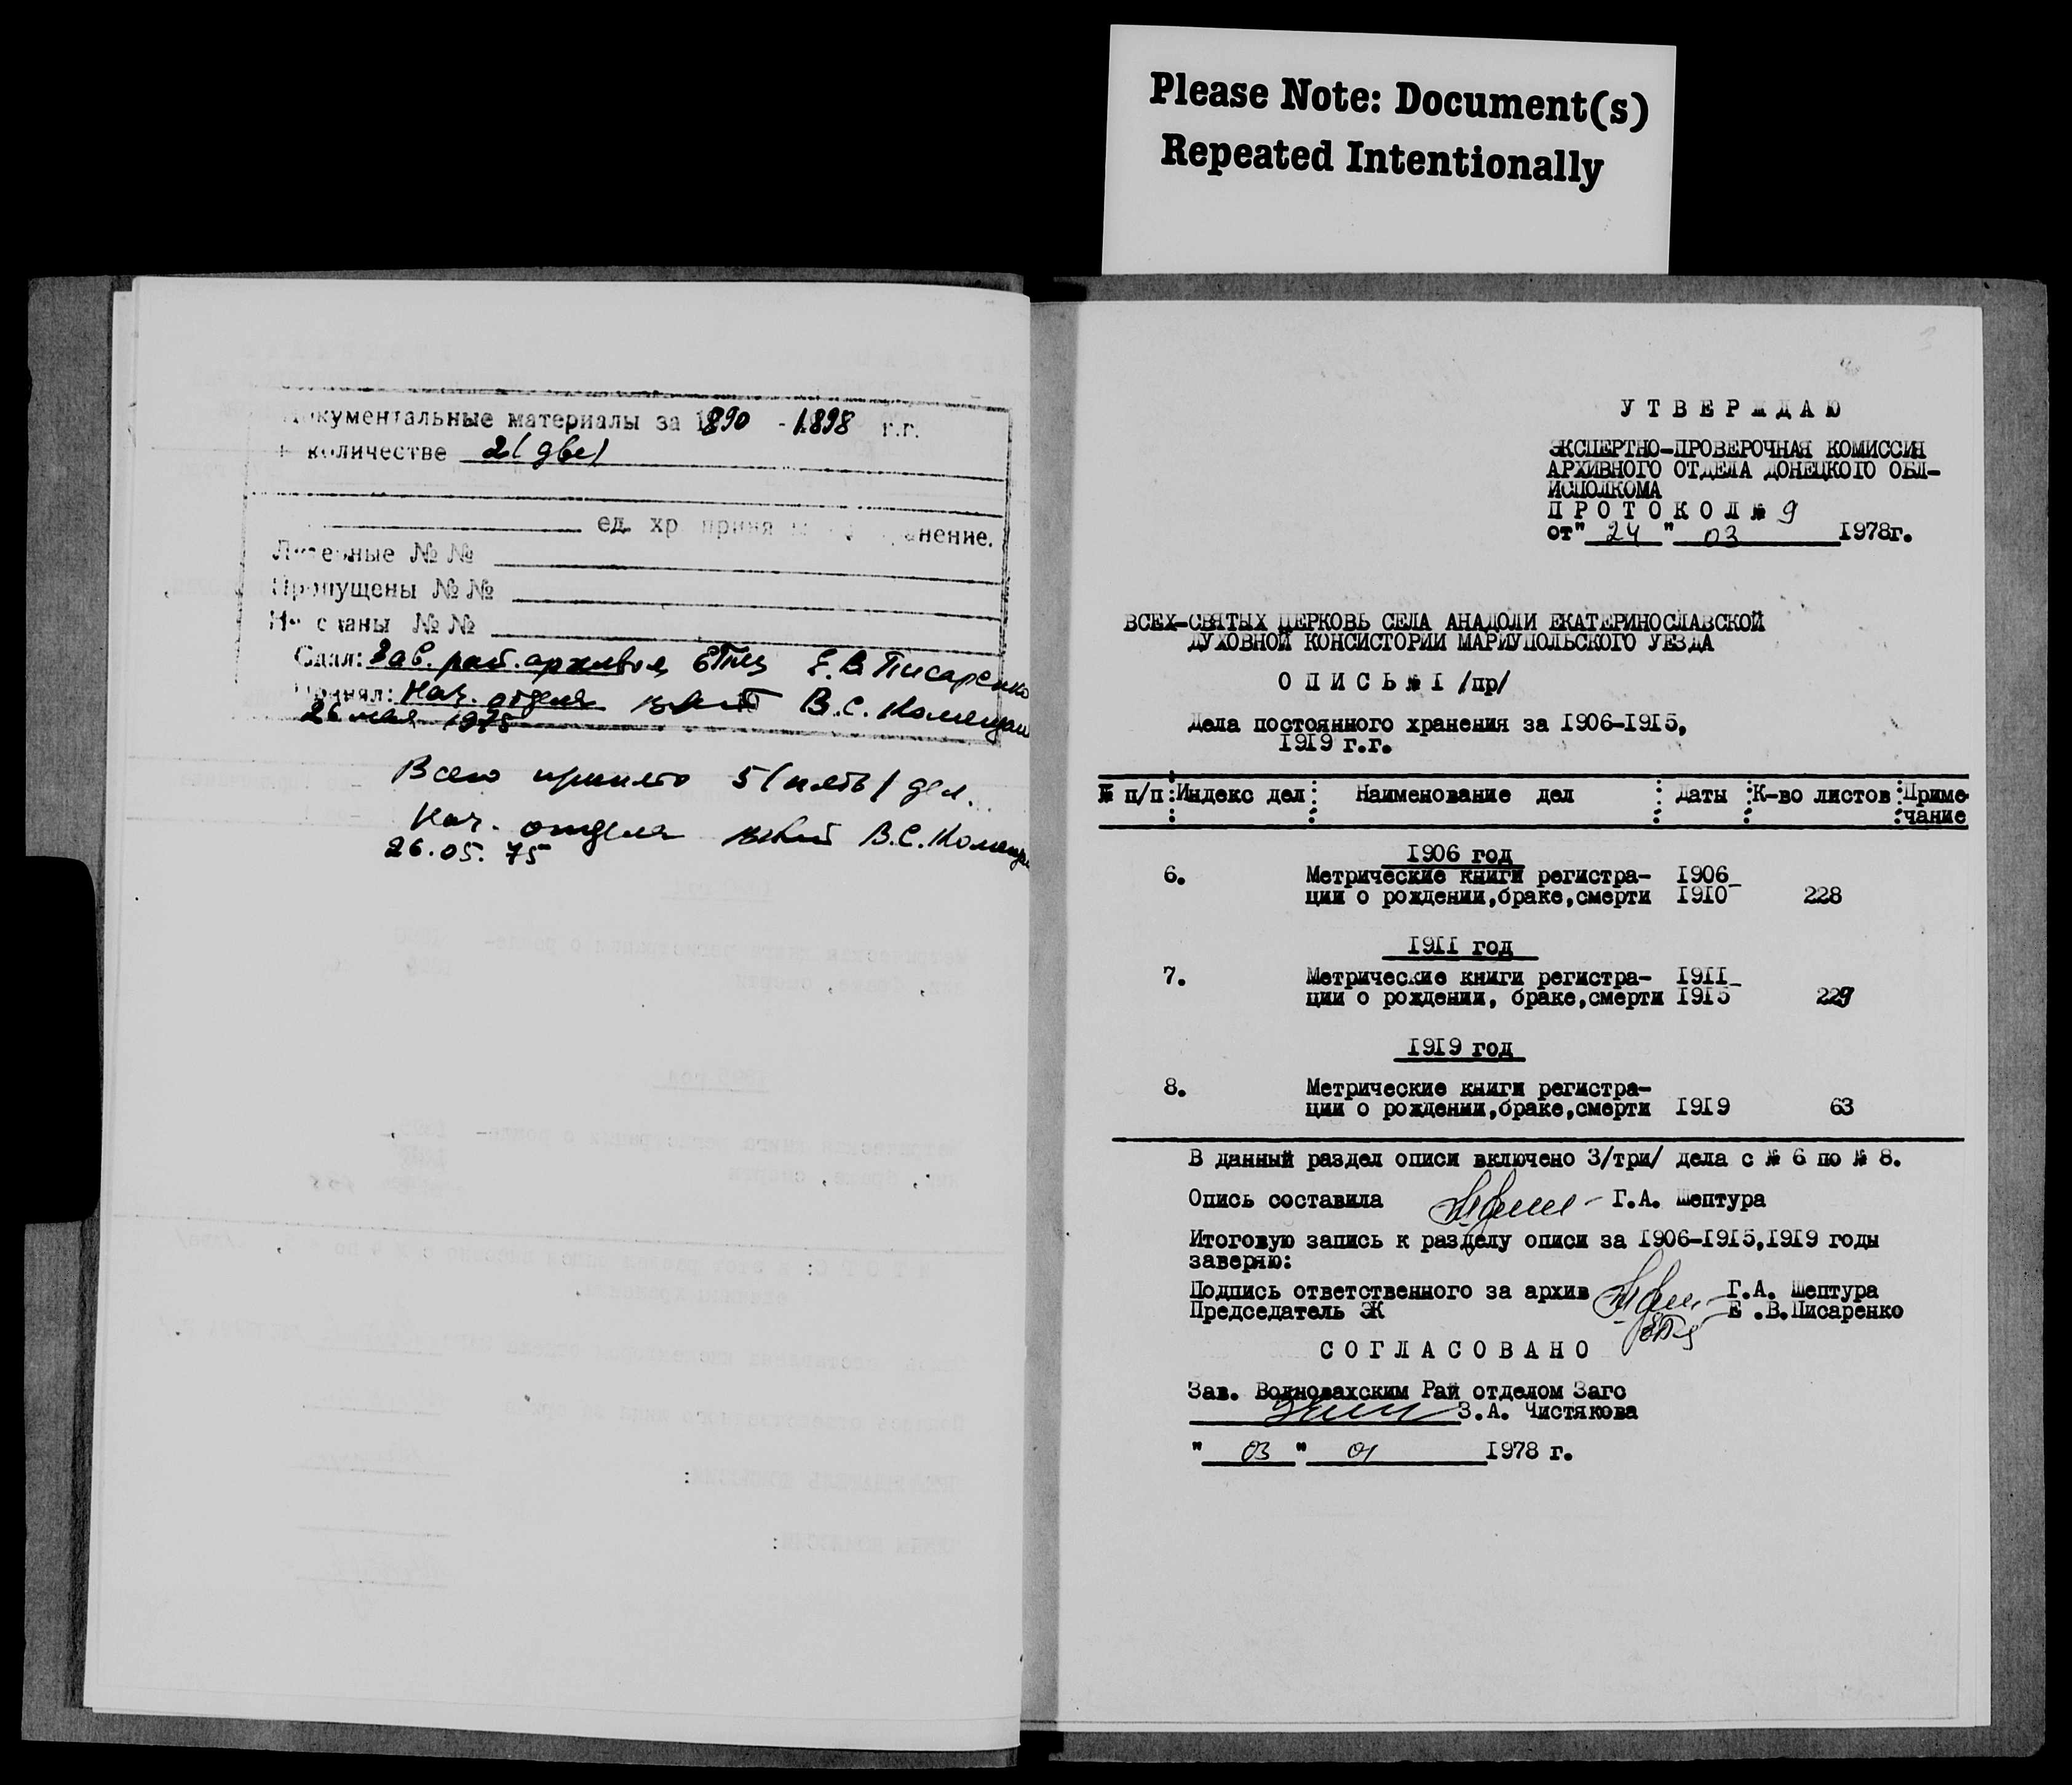 Please Note: Document(s)
Repeated Intentionally
документальные материалы за 1890 - 1898 г.г.
в количестве 2 (две)
ед. хр.
Литерные №№
Пропущены №№
№№
Сдал: Зав. рай. архивом Е.В. Писаренко
Принял: Нач. отдела В.С.
26 мая 1975
Всего принято 5 (пять) дел.
Нач. отдела В.С.
26.05.75
УТВЕРЖДАЮ
ЭКСПЕРТНО-ПРОВЕРОЧНАЯ КОМИССИЯ
АРХИВНОГО ОТДЕЛА ДОНЕЦКОГО ОБЛ-
ИСПОЛКОМА
ПРОТОКОЛ № 9
от " 24 " 03 1978г.
ВСЕХ-СВЯТЫХ ЦЕРКОВЬ СЕЛА АНАДОЛИ ЕКАТЕРИНОСЛАВСКОЙ
ДУХОВНОЙ КОНСИСТОРИИ МАРИУПОЛЬСКОГО УЕЗДА
ОПИСЬ № I /пр/
Дела постоянного хранения за 1906-1915,
1919 г.г.
№ п/п : Индекс дел : Наименование дел : Даты : К-во листов : Приме-
чание
1906 год
6. Метрические книги регистра- 1906-
ции о рождении, браке, смерти 1910 228
1911 год
7. Метрические книги регистра- 1911-
ции о рождении, браке, смерти 1915 229
1919 год
8. Метрические книги регистра-
ции о рождении, браке, смерти 1919 63
В данный раздел описи включено 3/три/ дела с № 6 по № 8.
Опись составила Г.А. Шептура
Итоговую запись к разделу описи за 1906-1915,1919 годы
заверяю:
Подпись ответственного за архив Г.А. Шептура
Председатель ЭК Е.В.Писаренко
СОГЛАСОВАНО
Зав. Волновахским Рай отделом Загс
З.А. Чистякова
" 03 " 01 1978 г.